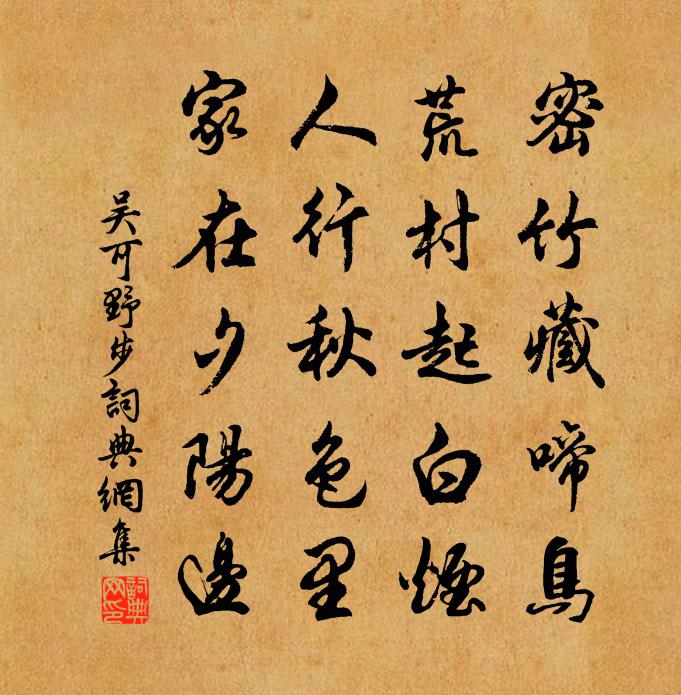 密竹藏啼鳥
荒村起白煙
人行秋色里
家在夕陽邊
吳可野步詞典網集
詞典網印